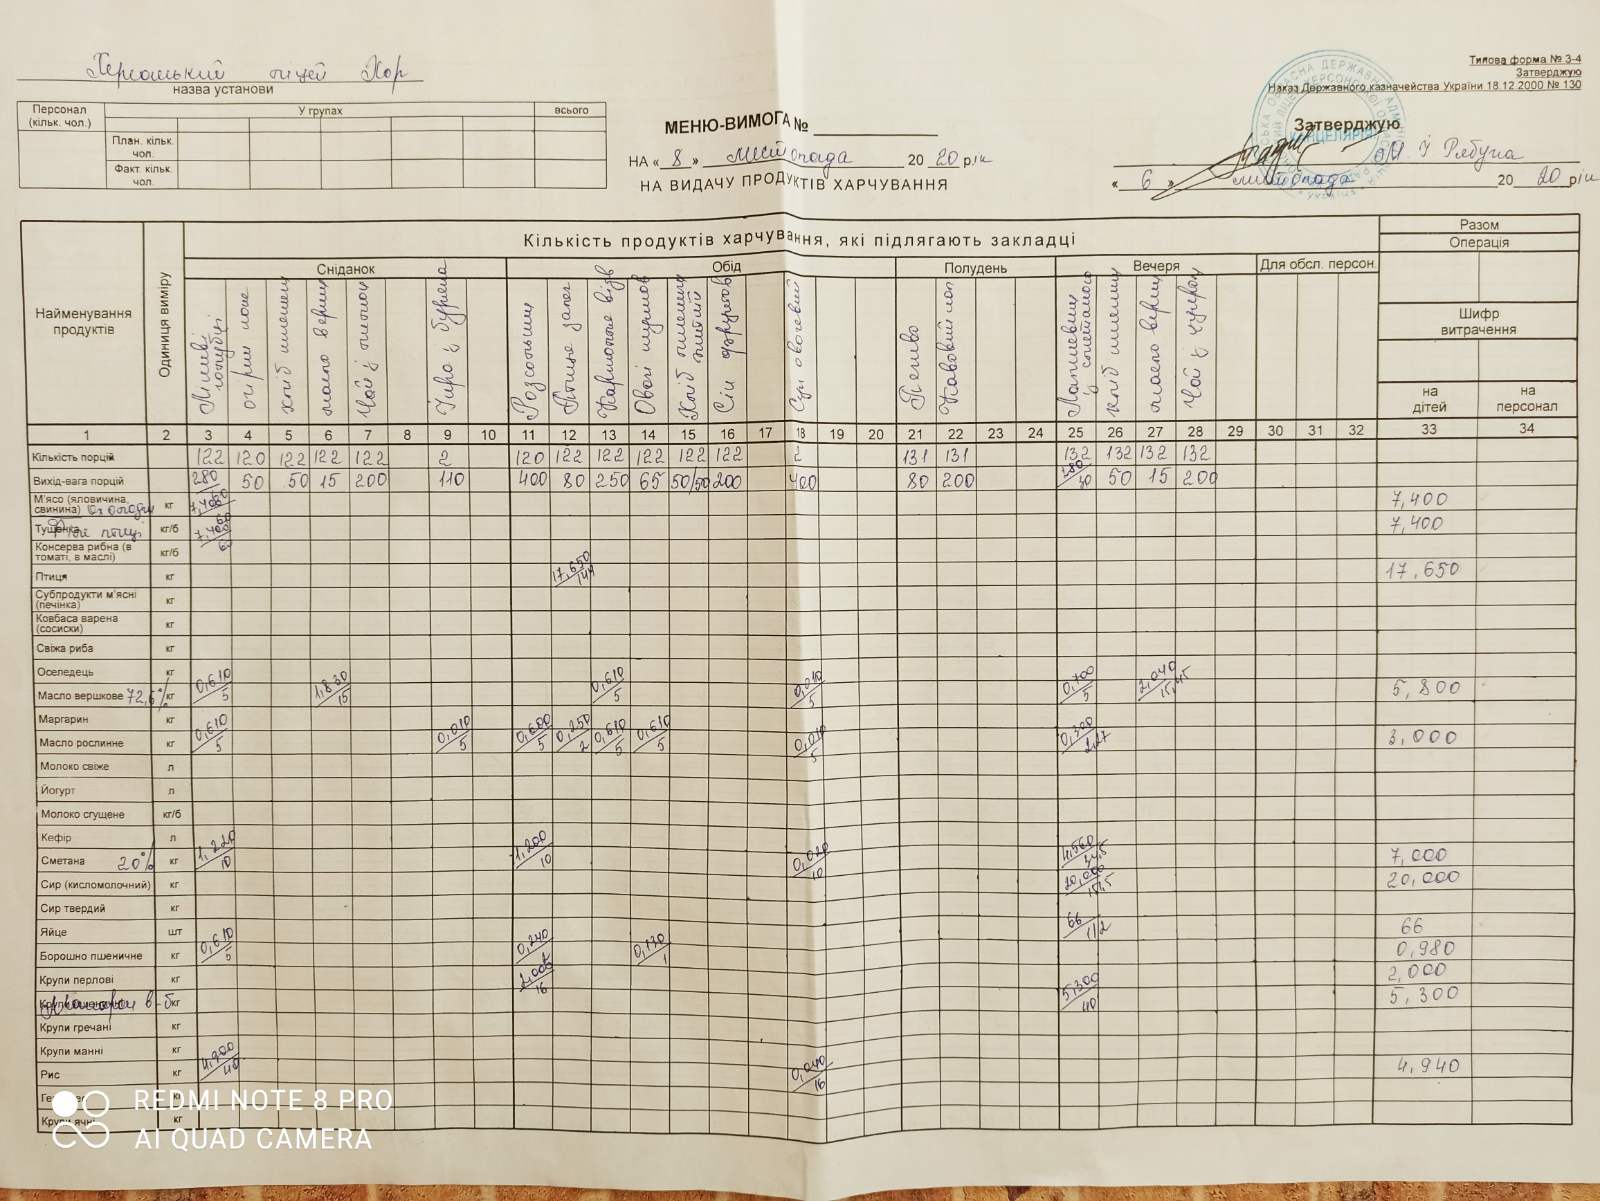 Херсонський ліцей Хор
назва установи
Типова форма № З-4
Затверджую
Наказ Державного казначейства України 18.12 2000 № 130
Персонал (кільк. чол.) У групах всього
План. кільк. чол.
Факт. кільк. чол.
МЕНЮ-ВИМОГА №
НА « 8 » листопада 20 20 рік
НА ВИДАЧУ ПРОДУКТІВ ХАРЧУВАННЯ
Затверджую
КАНЦЕЛЯРІЯ
« 6 » листопада 20 20 рік
Найменування продуктів
Одиниця виміру
Кількість продуктів харчування, які підлягають закладці
Разом
Операція
Шифр витрачення
на дітей
на персонал
Сніданок Обід Полудень Вечеря Для обсл. персон.
Ліниві голубці
огірки
хліб пшенич
масло вершк
Чай з лимоном
Ікра з буряка
Розсольник
Птиця запеч
Картопля відв
Овочі
Хліб пшенич житній
Сік фруктов
Суп овочевий
Печиво
Кавовий нап
Лапшевник з сметаною
хліб пшенич
масло вершк
Чай з цукром
1 2 3 4 5 6 7 8 9 10 11 12 13 14 15 16 17 18 19 20 21 22 23 24 25 26 27 28 29 30 31 32 33 34
Кількість порцій 122 120 122 122 122 2 120 122 122 122 122 122 2 131 131 132 132 132 132
Вихід-вага порцій 280 50 50 15 200 110 400 80 250 65 50/50 200 400 80 200 180/30 50 15 200
М'ясо (яловичина, свинина) кг 7,400/60 7,400
Тушенка кг/б 7,400/60 7,400
Консерва рибна (в томаті, в маслі) кг/б
Птиця кг 17,650/144 17,650
Субпродукти м'ясні (печінка) кг
Ковбаса варена (сосиски) кг
Свіжа риба кг
Оселедець кг
Масло вершкове 72,6% кг 0,610/5 1,830/15 0,610/5 0,010/5 0,700/5 2,040/15,45 5,800
Маргарин кг
Масло рослинне кг 0,610/5 0,010/5 0,600/5 0,250/2 0,610/5 0,610/5 0,010/5 0,300/2,27 3,000
Молоко свіже л
Йогурт л
Молоко сгущене кг/б
Кефір л
Сметана 20% кг 1,220/10 1,200/10 0,020/10 4,560/34,5 7,000
Сир (кисломолочний) кг 20,000/151,5 20,000
Сир твердий кг
Яйце шт 66/1/2 66
Борошно пшеничне кг 0,610/5 0,240 0,130/1 0,980
Крупи перлові кг 2,000/16 2,000
кг 5,300/40 5,300
Крупи гречані кг
Крупи манні кг
Рис кг 4,900/40 0,040/16 4,940
Крупи ячні кг
REDMI NOTE 8 PRO
AI QUAD CAMERA